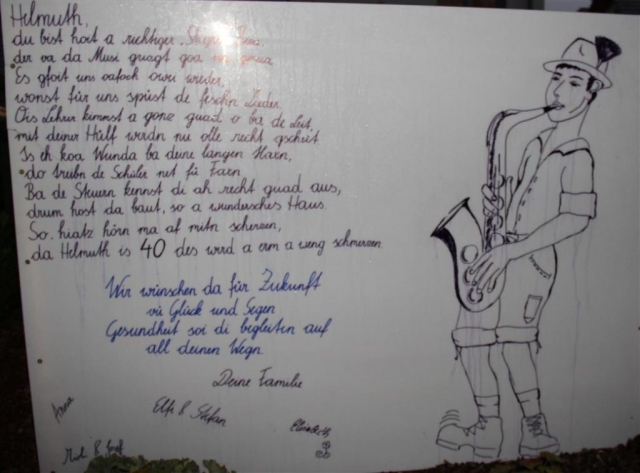 Helmuth,
du bist hoit a richtiger
der va da Musi
Es gfoit uns oafoch owei wieder,
wonst für uns spüst de feschn Lieder.
Ois Lehrer kimmst a gonz guad o ba de Leit,
mit deiner Hülf werdn nu olle recht gscheit
Is eh koa Wunda ba deine langen Haxn,
do treibn de Schüler net fü Faxn.
Ba de Steuern kennst di ah recht guad aus,
drum host da baut, so a wundersches Haus.
So, hiatz hörn ma af mitn scherzen,
da Helmuth is 40 des wird a erm a weng schmerzen.
Wir wünschen da für Zukunft
vü Glück und Segen
Gesundheit soi di begleiten auf
all deinen Wegn.
Deine Familie
Anna
Elfi & Stefan
Elisabeth